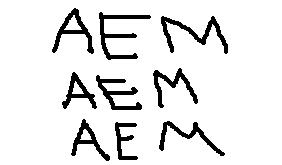 AEM
AEM
AEM